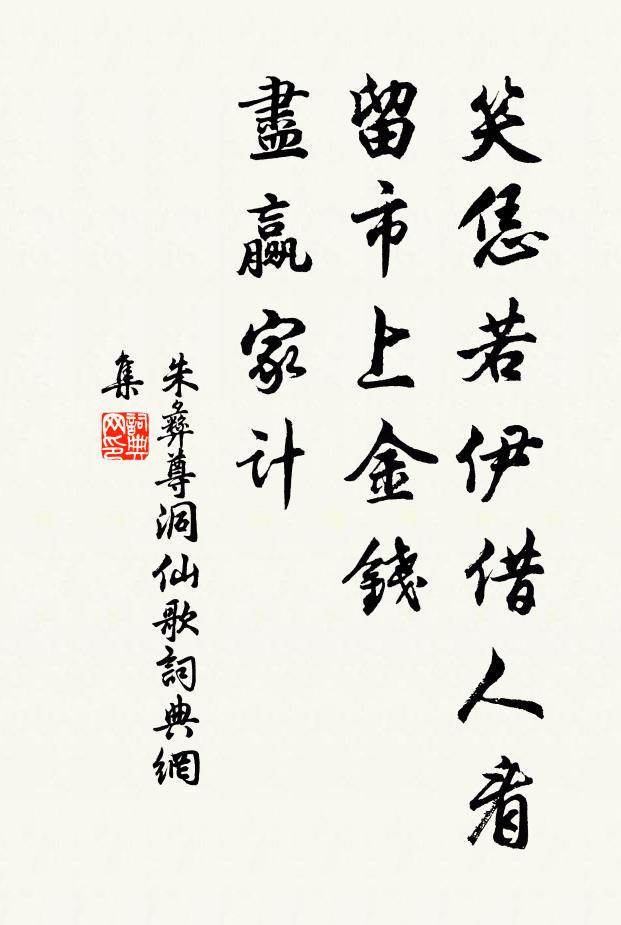 笑恁若伊借人看
留市上金錢
盡贏家計
朱彝尊洞仙歌詞典網
集
詞典
网印